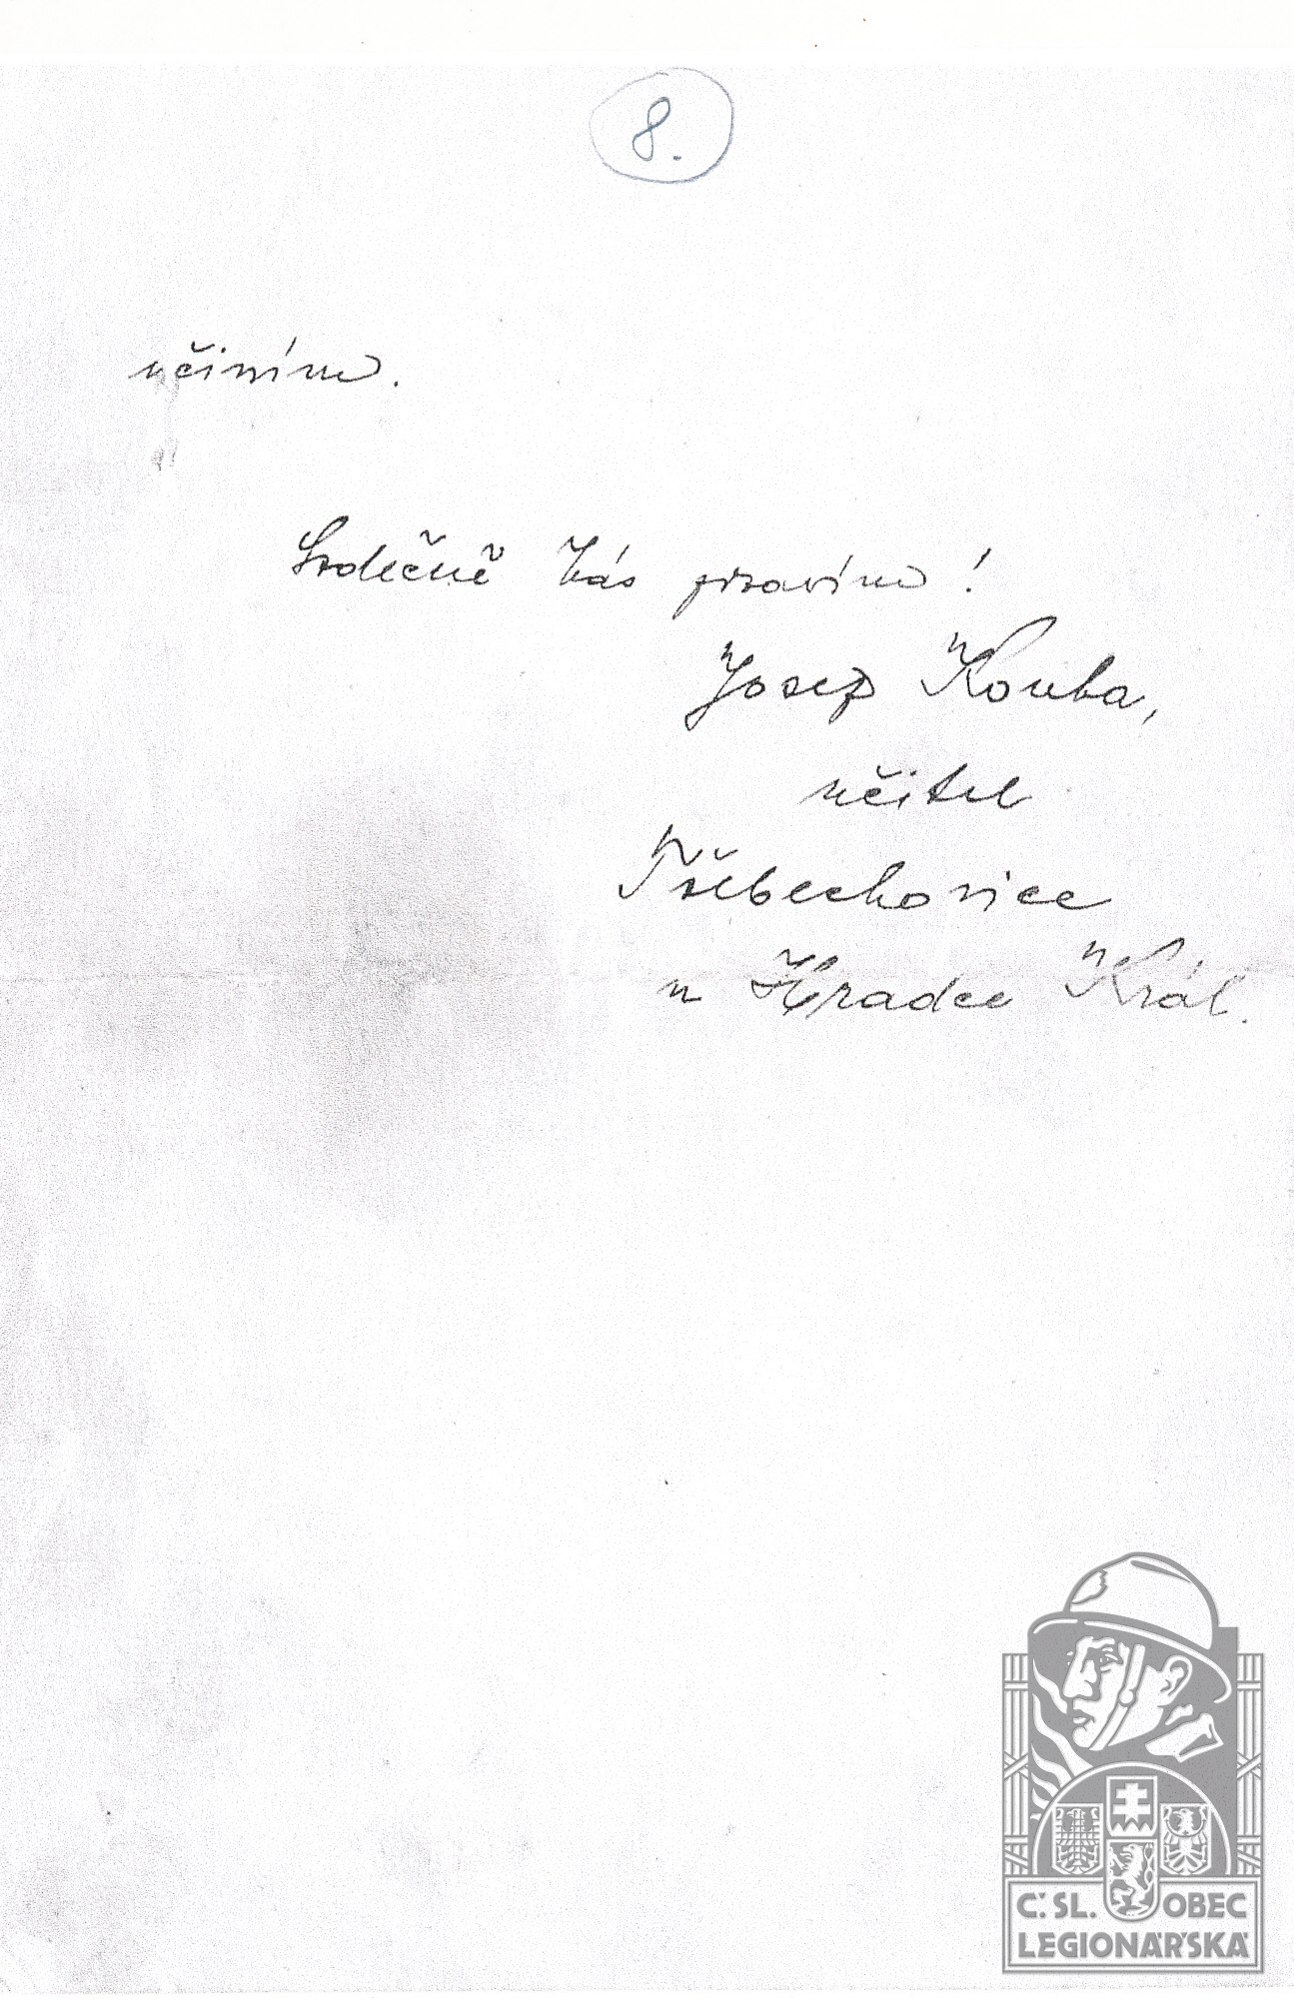 8.
učiním.
Srdečně Vás zdravím!
Josef Kouba,
učitel
Třebechovice
u Hradce Král.
Č. SL. OBEC
LEGIONÁŘSKÁ